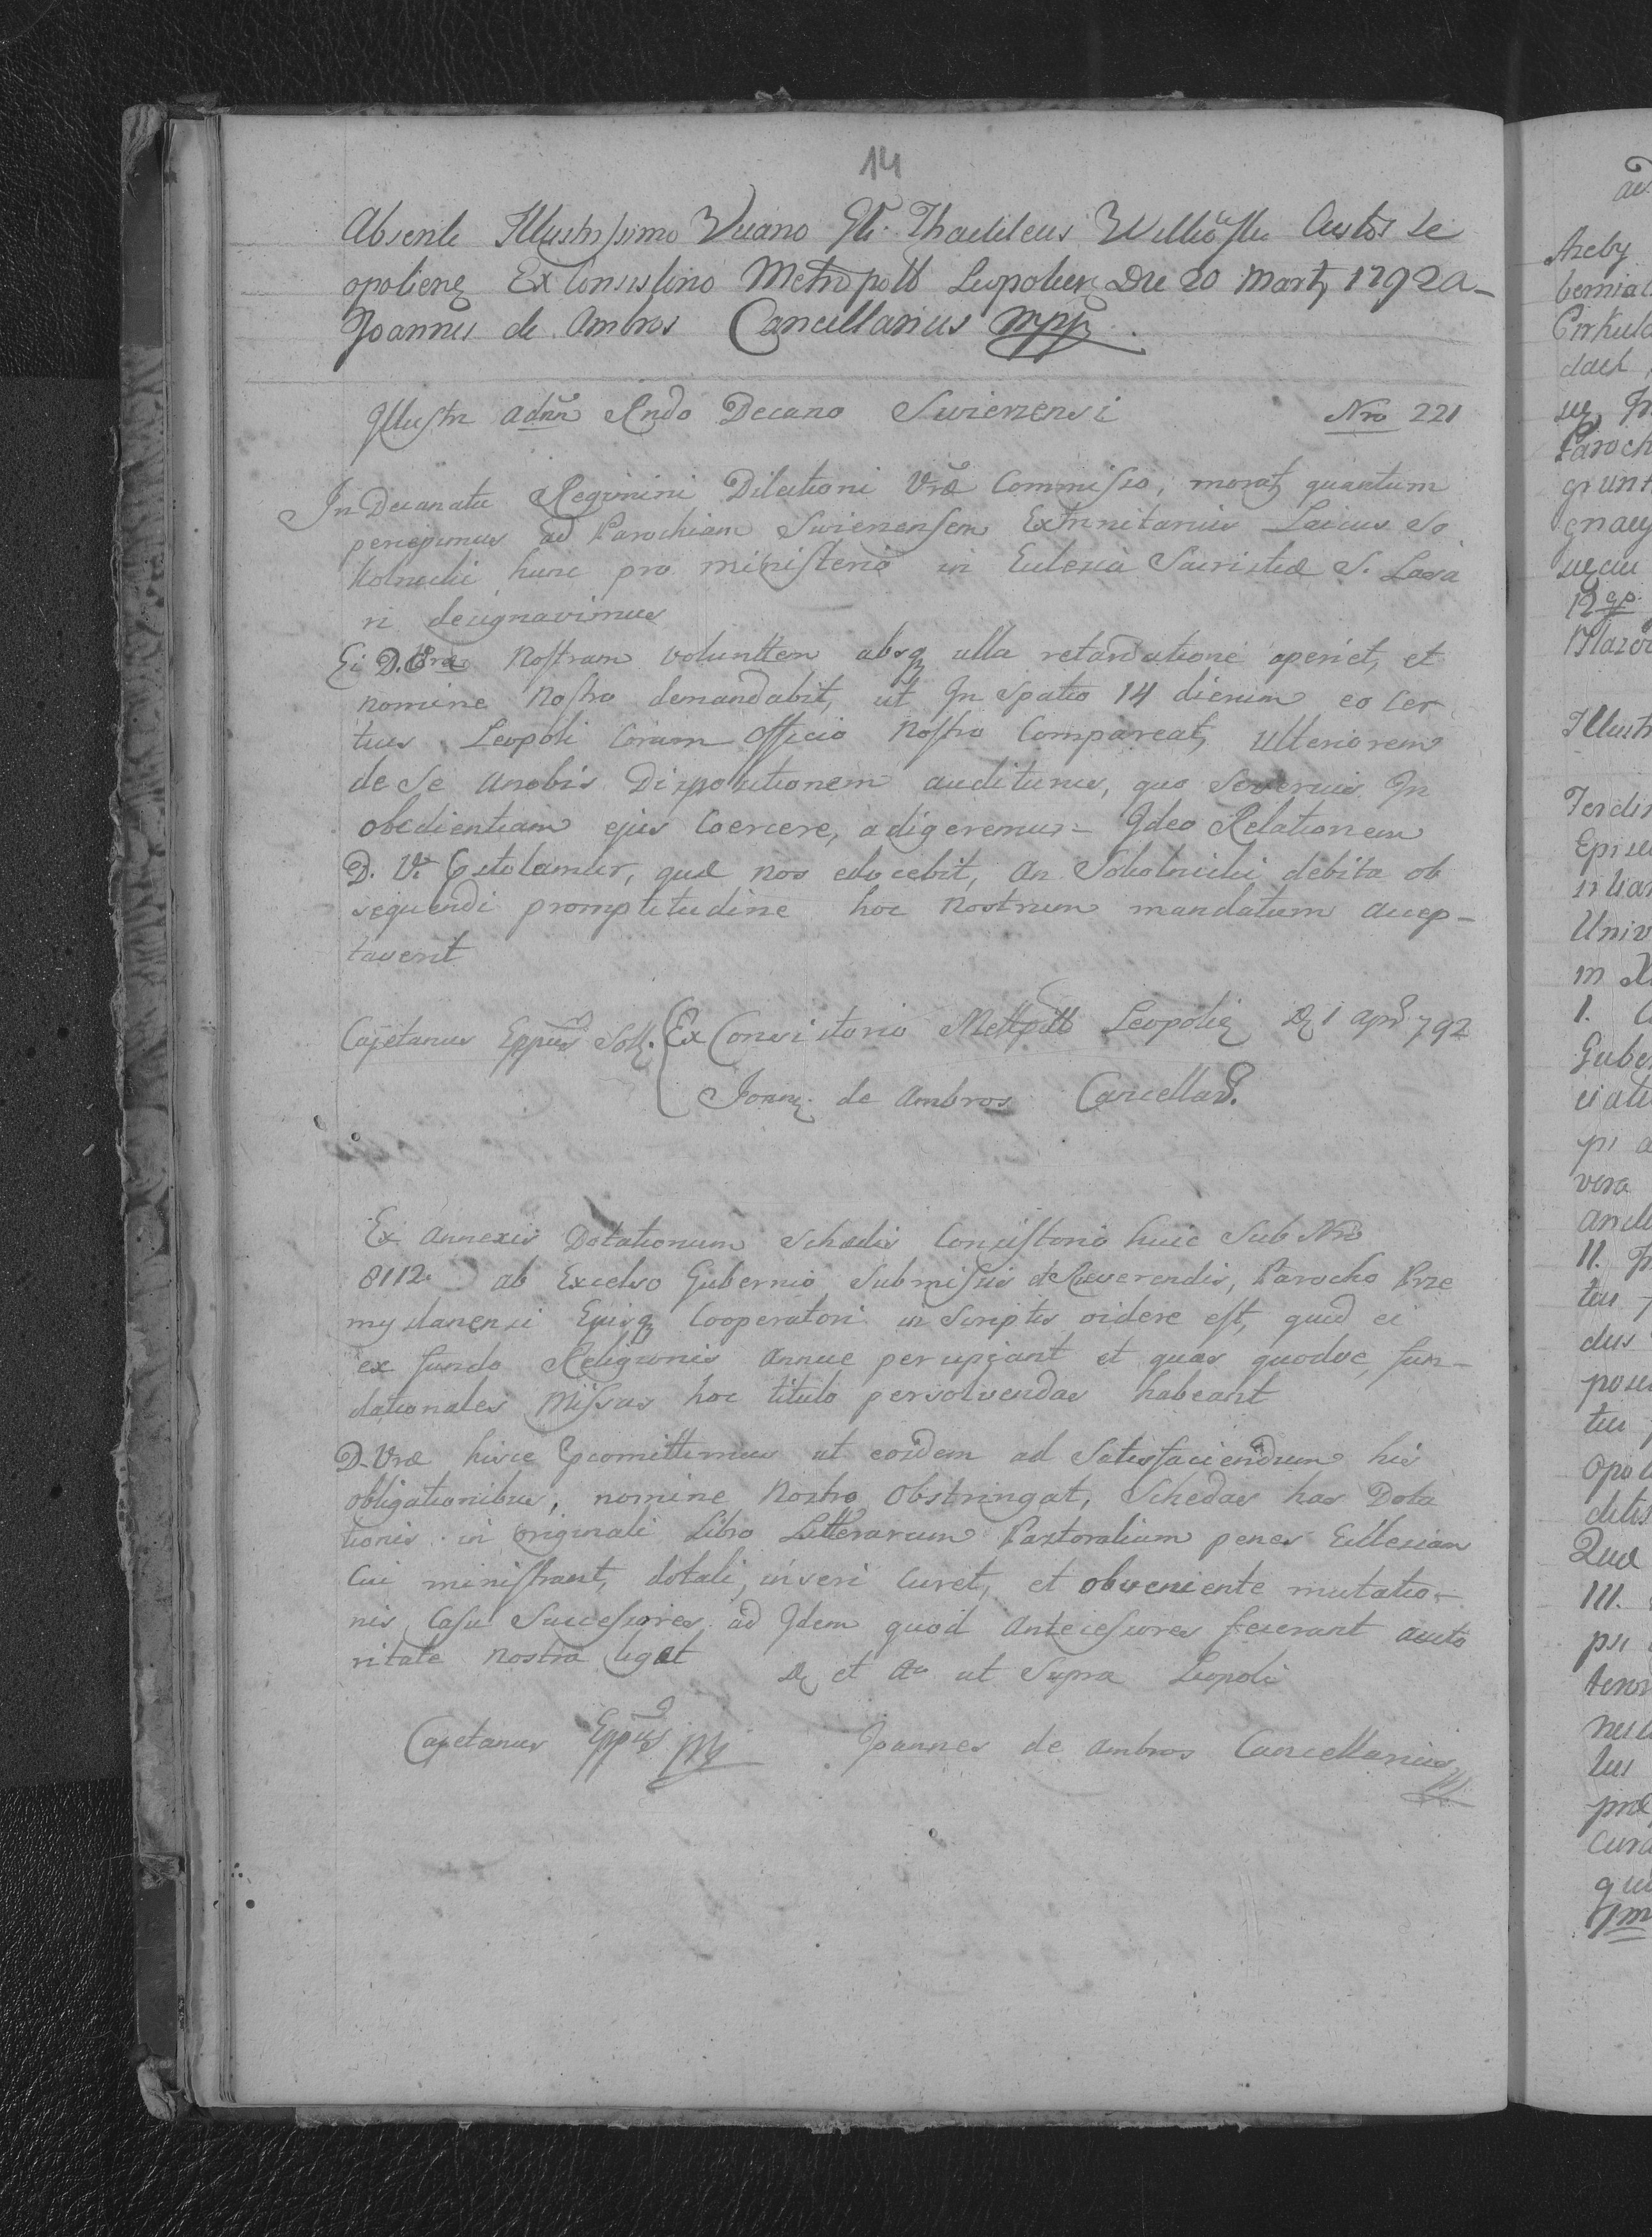 14
Absente Illustrissimo Vicario Gli. Thaddeus Custos Le
opoliens Ex Consistorio Metropolt Leopolien Die 20 Martz 1792 a-
Joannes de Ambros Cancellarius mpp
Illustri admn Rndo Decano Swirzensi Nro 221
In Decanatu Regimini Dilectioni Vræ Commisso, moratz quantum
percepimus ad Parochiam Swirzensem ExTrinitarius Laicus So
kolnicki hunc pro ministerio in Eclesia Sacristiæ S. Laza
ri designavimus
Ei D. Vræ Nostram volunttem absq ulla retardatione aperiet, et
nomine Nostro demandabit, ut In Spatio 14 dierum eo Cer
tius Leopoli Coram Officio Nostro Compareat, Ulteriorem
de Se anobis Dispositionem auditurus, quo Severius In
obedientiam ejus Coercere, adigeremur- Ideo Relationem
D. V. , quæ nos edocebit, an Sokolnicki debita ob
sequendi promptitudine hoc Nostrum mandatum accep-
taverit
Cajetanus Eppus Soll. Ex Consistorio Mettpoltt Leopoliz Dz 1 apr 792
Joanz de Ambros Cancellar.
Ex Annexis Dotationum Schedis Consistorio huic Sub Nro
8112 ab Excelso Gubernio Submissis deReverendis, Parocho Prze
myslanensi Ejusq Cooperatori in Scriptis videre est, quid ei
ex fundo Religionis Annue percipiant et quas quodve, fun-
dationales Missas hoc titulo persolvendas habeant
D. Vræ hisce comittimus ut eosdem ad Satisfaciendum his
obligationibus, nomine Nostro Obstringat, Schedas has Dota
tionis in originali Libro Litterarum Pastoralium penes Ecllesiam
Cui ministrant, dotali, inseri Curet, et obveniente mutatio-
nis Casu Successores ad Idem quod Antecessores fecerant aucto
ritate Nostra ligat Dz et Ao ut Supra Leopoli
Cajetanus Eppus mp Joannes de Ambros Cancellarius